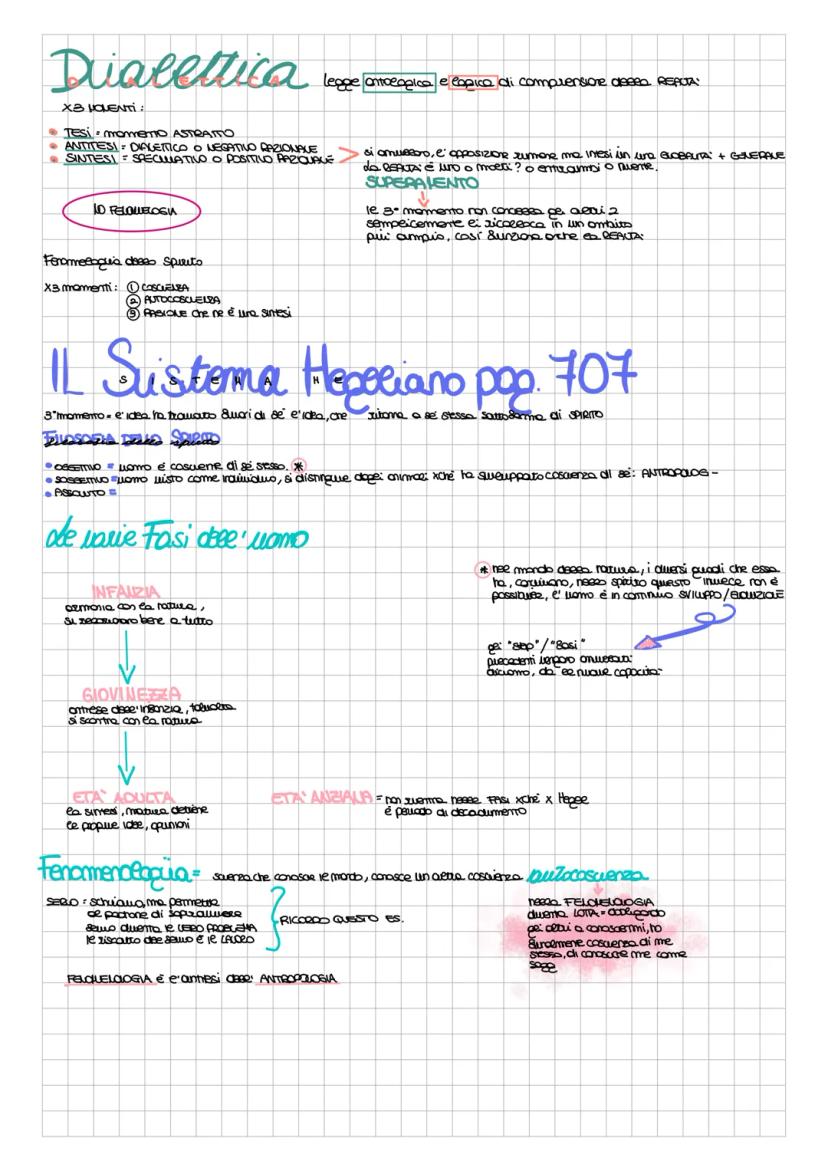 Dialettica legge ontologica e logica di comprensione della REALTÀ
DIALETTICA
X3 MOMENTI:
TESI = momento ASTRATTO
ANTITESI = DIALETTICO O NEGATIVO RAZIONALE
SINTESI = SPECULATIVO O POSITIVO RAZIONALE
si annullano, è opposizione rumore ma intesi in una GLOBALITÀ + GENERALE
la REALTÀ è uno o molti? o entrambi o niente.
SUPERAMENTO
le 3° momento non concessa gli altri 2
semplicemente li ricolloca in un ambito
più ampio, così funziona anche la REALTÀ
Fenomenologia dello Spirito
X3 momenti: ① COSCIENZA
② AUTOCOSCIENZA
③ RAGIONE che ne è una sintesi
IL Sistema Hegeliano pag. 707
SISTEMA HE
3° momento = l'idea ha trovato fuori di sé l'idea, che ritorna a sé stessa sottoforma di SPIRITO
FILOSOFIA DELLO SPIRITO
OGGETTIVO = uomo è cosciente di sé stesso. *
SOGGETTIVO = uomo visto come individuo, si distingue dagli animali xché ha sviluppato coscienza di sé: ANTROPOLOG-
ASSOLUTO =
Le varie Fasi dell'uomo
* nel mondo della natura, i diversi gradi che essa
ha, continuano, nello spirito questo invece non è
possibile, l'uomo è in continuo SVILUPPO/EVOLUZIONE
gli "step"/"fasi"
precedenti vengono annullati
diciamo, da le nuove capacità
INFANZIA
armonia con la natura,
si bene a tutto
GIOVINEZZA
antitesi dell'infanzia, talvolta
si scontra con la natura
ETÀ ADULTA
la sintesi, matura detiene
le proprie idee, opinioni
ETÀ ANZIANA = non rientra nelle FASI xché x Hegel
è periodo di decadimento
Fenomenologia = scienza che conosce il mondo, conosce un altra coscienza autocoscienza
SERVO = schiavo, ma permette
al padrone di sopravvivere
servo diventa il VERO PROBLEMA
il riscatto del servo è il LAVORO
RICORDO QUESTO ES.
nella
diventa LOTTA =
gli altri a conoscermi, ho
finalmente coscienza di me
stesso, di conoscere me come
sogg
è l'antitesi dell'ANTROPOLOGIA